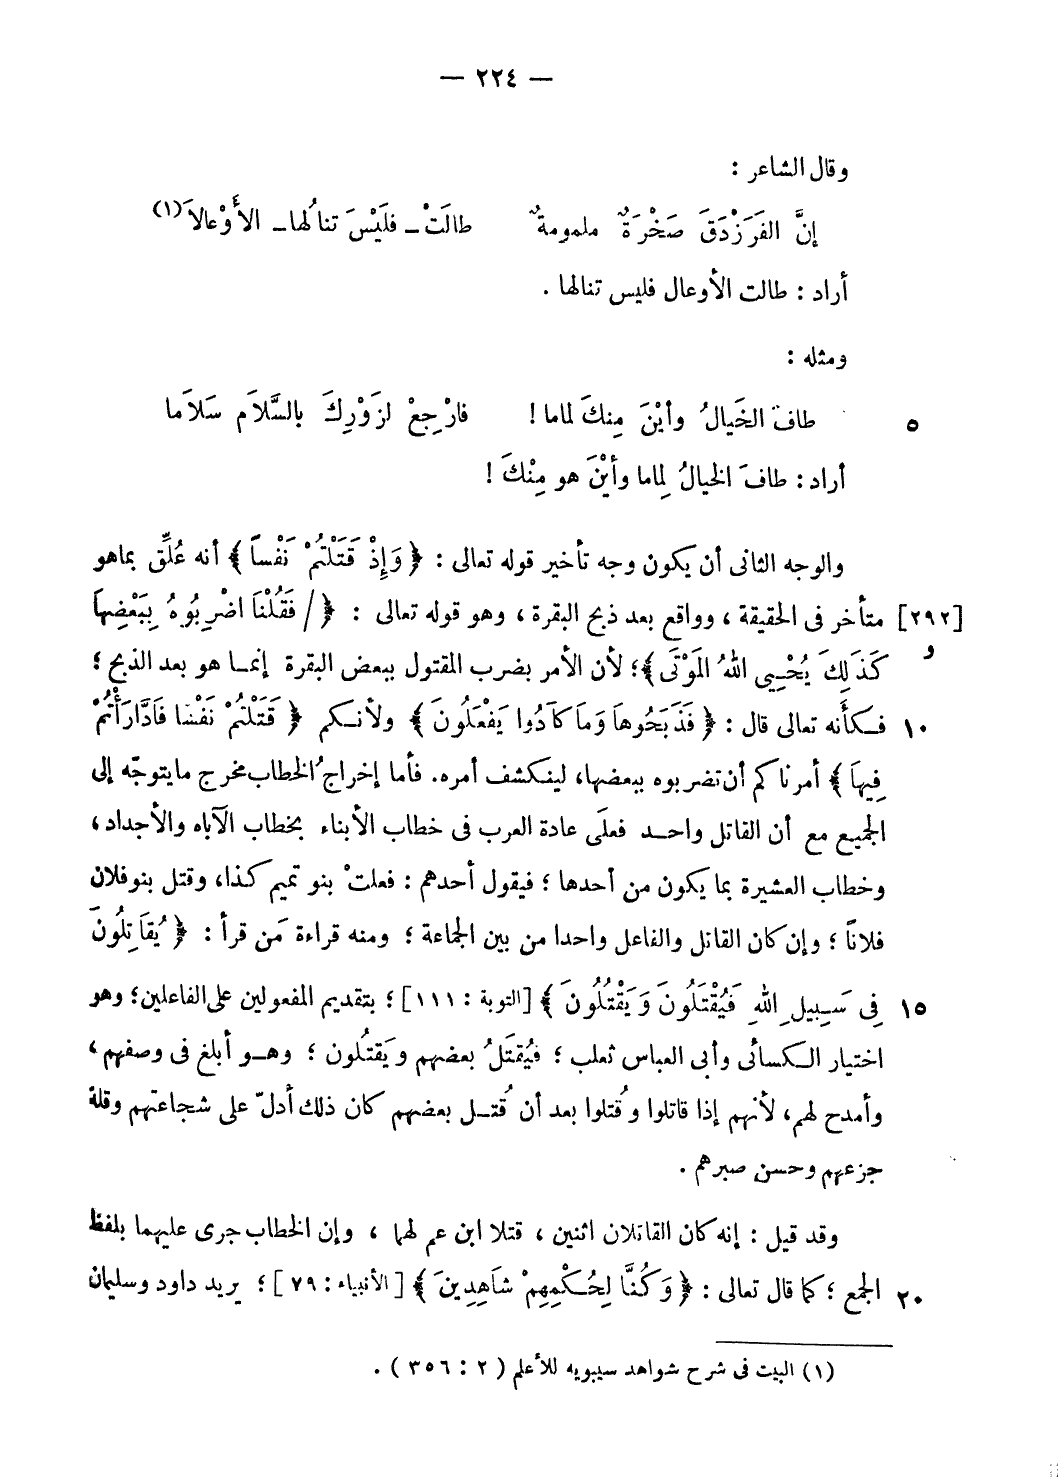 — ٢٢٤ —
وقال الشاعر :
إنَّ الفَرَزْدَقَ صَخْرَةٌ ملمومةٌ طالَتْ ـ فلَيْسَ تنالُها ـ الأَوْعالاَ(١)
أراد : طالت الأوعال فليس تنالها .
ومثله :
٥ طافَ الخَيالُ وأيْنَ مِنكَ لماما ! فارْجِعْ لزَوْرِكَ بالسَّلاَمِ سَلاَما
أراد : طافَ الخيالُ لِماما وأيْنَ هو مِنْكَ !
والوجه الثانى أن يكون وجه تأخير قوله تعالى : ﴿ وَإِذْ قَتَلْتُمْ نَفْساً ﴾ أنه عُلِّق بماهو
[٢٩٢] متأخر فى الحقيقة ، وواقع بعد ذبح البقرة ، وهو قوله تعالى : ﴿ / فَقُلْنَا اضْرِبُوهُ بِبَعْضِهاَ
و كَذَلِكَ يُحْيِى اللهُ المَوْتَى ﴾ ؛ لأن الأمر بضرب المقتول ببعض البقرة إنما هو بعد الذبح ؛
١٠ فكأنه تعالى قال : ﴿ فَذَبَحُوهاَ وَمَا كاَدُوا يَفْعَلُونَ ﴾ ولأنكم ﴿ قَتَلْتُمْ نَفْسًا فَادَّارَأْتُمْ
فِيهاَ ﴾ أمرناكم أن تضربوه ببعضها، لينكشف أمره. فأما إخراجُ الخطاب مخرج مايتوجّه إلى
الجميع مع أن القاتل واحد فعلَى عادة العرب فى خطاب الأبناء بخطاب الآباه والأجداد،
وخطاب العشيرة بما يكون من أحدها ؛ فيقول أحدهم : فعلتْ بنو تميم كذا، وقتل بنو فلان
فلاناً ؛ وإن كان القاتل والفاعل واحدا من بين الجماعة ؛ ومنه قراءة مَن قرأ : ﴿ يُقاَتِلُونَ
١٥ فِى سَبِيلِ اللهِ فَيُقْتَلُونَ وَيَقْتُلُونَ ﴾ [التوبة : ١١١] ؛ بتقديم المفعولين على الفاعلين؛ وهو
اختيار الكسائى وأبى العباس ثعلب ؛ فيُقتَلُ بعضهم ويَقتُلون ؛ وهو أبلغ فى وصفهم ،
وأمدح لهم، لأنهم إذا قاتلوا وقُتلوا بعد أن قُتل بعضهم كان ذلك أدلّ على شجاعتهم وقلة
جزعهم وحسن صبرهم .
وقد قيل : إنه كان القاتلان اثنين ، قتلا ابن عم لهما ، وإن الخطاب جرى عليهما بلفظ
٢٠ الجمع ؛ كما قال تعالى : ﴿ وَكُنَّا لِحُكْمِهِمْ شاَهِدِينَ ﴾ [الأنبياء : ٧٩] ؛ يريد داود وسليمان
(١) البيت فى شرح شواهد سيبويه للأعلم ( ٢ : ٣٥٦ ) .